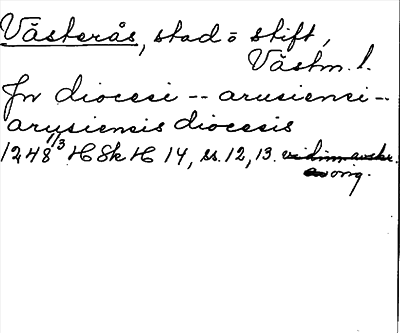 Västerås, stad o stift,
Västm. l.
In diocesi -- arusiensi --
arusiensis diocesis
1248 1/3 HSkH 14, ss. 12, 13. vidim. avskr.
av orig.